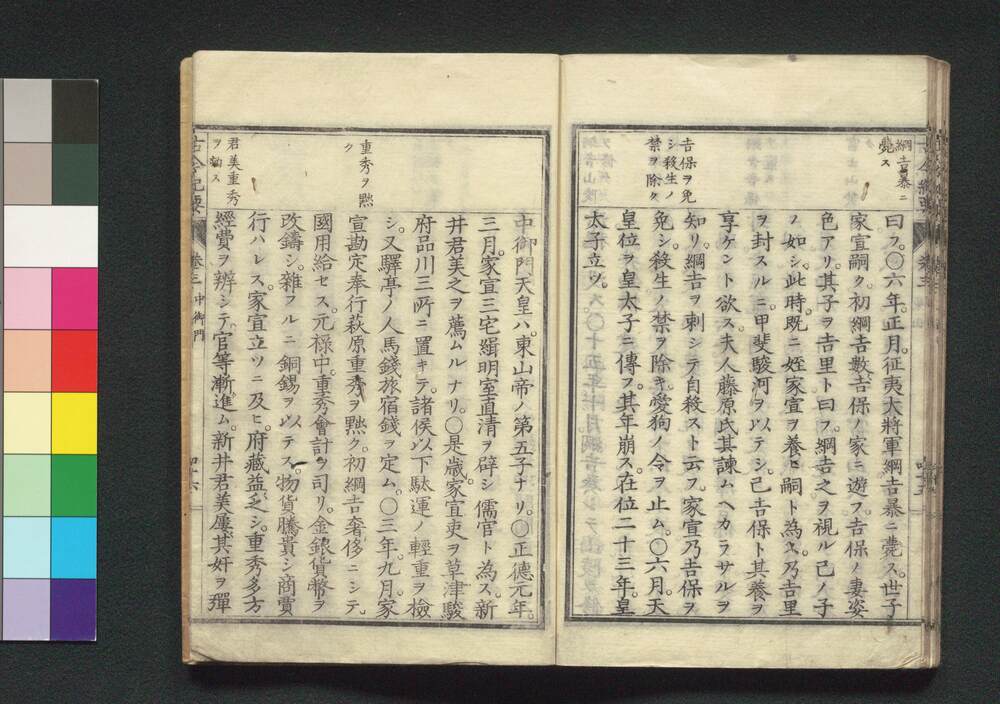 綱吉暴ニ
薨ス
曰フ。〇六年。正月。征夷大將軍綱吉暴ニ薨ス。世子
家宣嗣ク。初綱吉數吉保ノ家ニ遊フ。吉保ノ妻姿
色アリ。其子ヲ吉里ト曰フ。綱吉之ヲ視ル己ノ子
ノ如シ。此時。既ニ姪家宣ヲ養ヒ嗣ト為ス。乃吉里
ヲ封スルニ。甲斐駿河ヲ以テシ。己吉保ト其養ヲ
享ケント欲ス。夫人藤原氏其諫ムヘカラサルヲ
吉保ヲ免
シ殺生ノ
禁ヲ除ク
知リ。綱吉ヲ刺シテ自殺スト云フ。家宣乃吉保ヲ
免シ。殺生ノ禁ヲ除キ。愛狗ノ令ヲ止ム。〇六月。天
皇位ヲ皇太子ニ傳フ。其年崩ス。在位二十三年。皇
太子立ツ。
中御門天皇ハ。東山帝ノ第五子ナリ。〇正德元年。
三月。家宣三宅緝明室直清ヲ辟シ儒官ト為ス。新
井君美之ヲ薦ムルナリ。〇是歲。家宣吏ヲ草津駿
府品川三所ニ置キテ。諸侯以下駄運ノ輕重ヲ檢
シ。又驛亭ノ人馬錢旅宿錢ヲ定ム。〇三年。九月。家
重秀ヲ黙
ク
宣勘定奉行萩原重秀ヲ黙ク。初綱吉奢侈ニシテ。
國用給セス。元祿中。重秀會計ヲ司リ。金銀貨幣ヲ
改鑄シ。雜フルニ銅錫ヲ以テス。物貨騰貴シ商賈
行ハレス。家宣立ツニ及ヒ。府藏益乏シ。重秀多方
君美重秀
ヲ劾ス
經費ヲ辨シテ。官等漸進ム。新井君美屢其奸ヲ彈
卷三 中御門
四十六